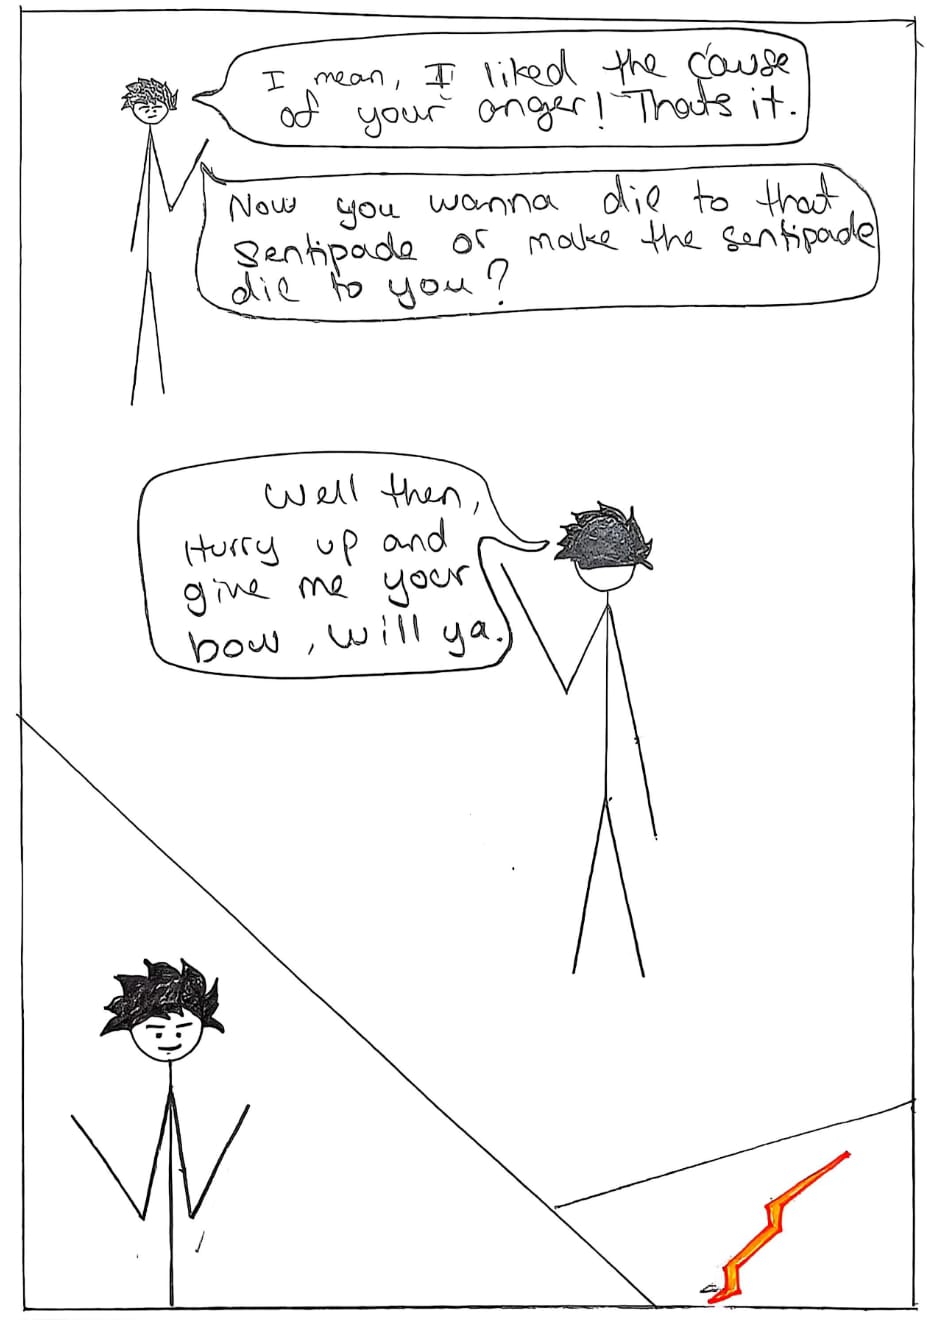 I mean, I liked the cause
of your anger! Thats it.
Now you wanna die to that
Sentipade or make the sentipade
die to you?
Well then,
Hurry up and
give me your
bow, will ya.